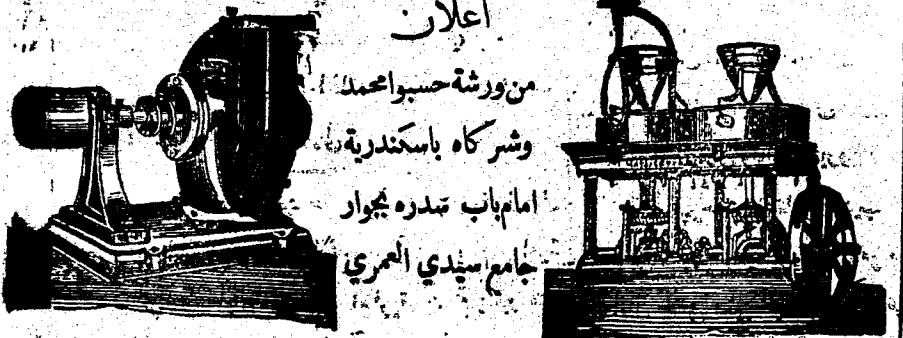 اعلان
من ورشة حسبوا محمد
وشركاه باسكندرية
امام باب سدره بجوار
جامع سيدي العمري